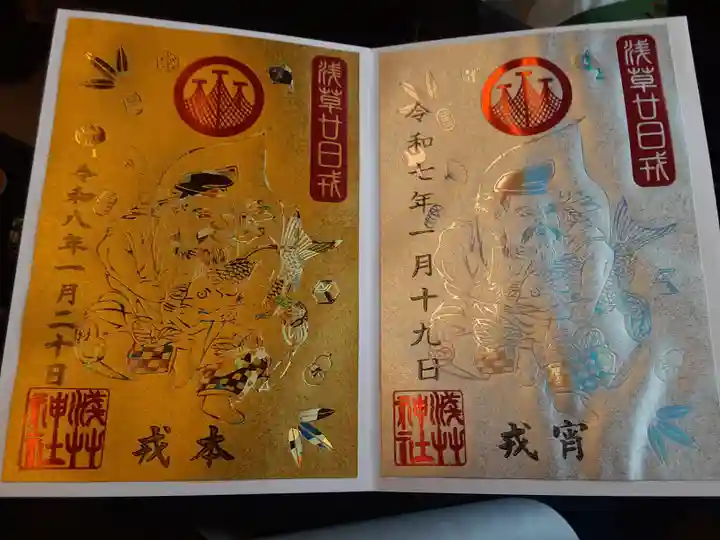 浅草廿日戎
令和七年一月十九日
宵戎
浅草神社
浅草廿日戎
令和八年一月二十日
本戎
浅草神社